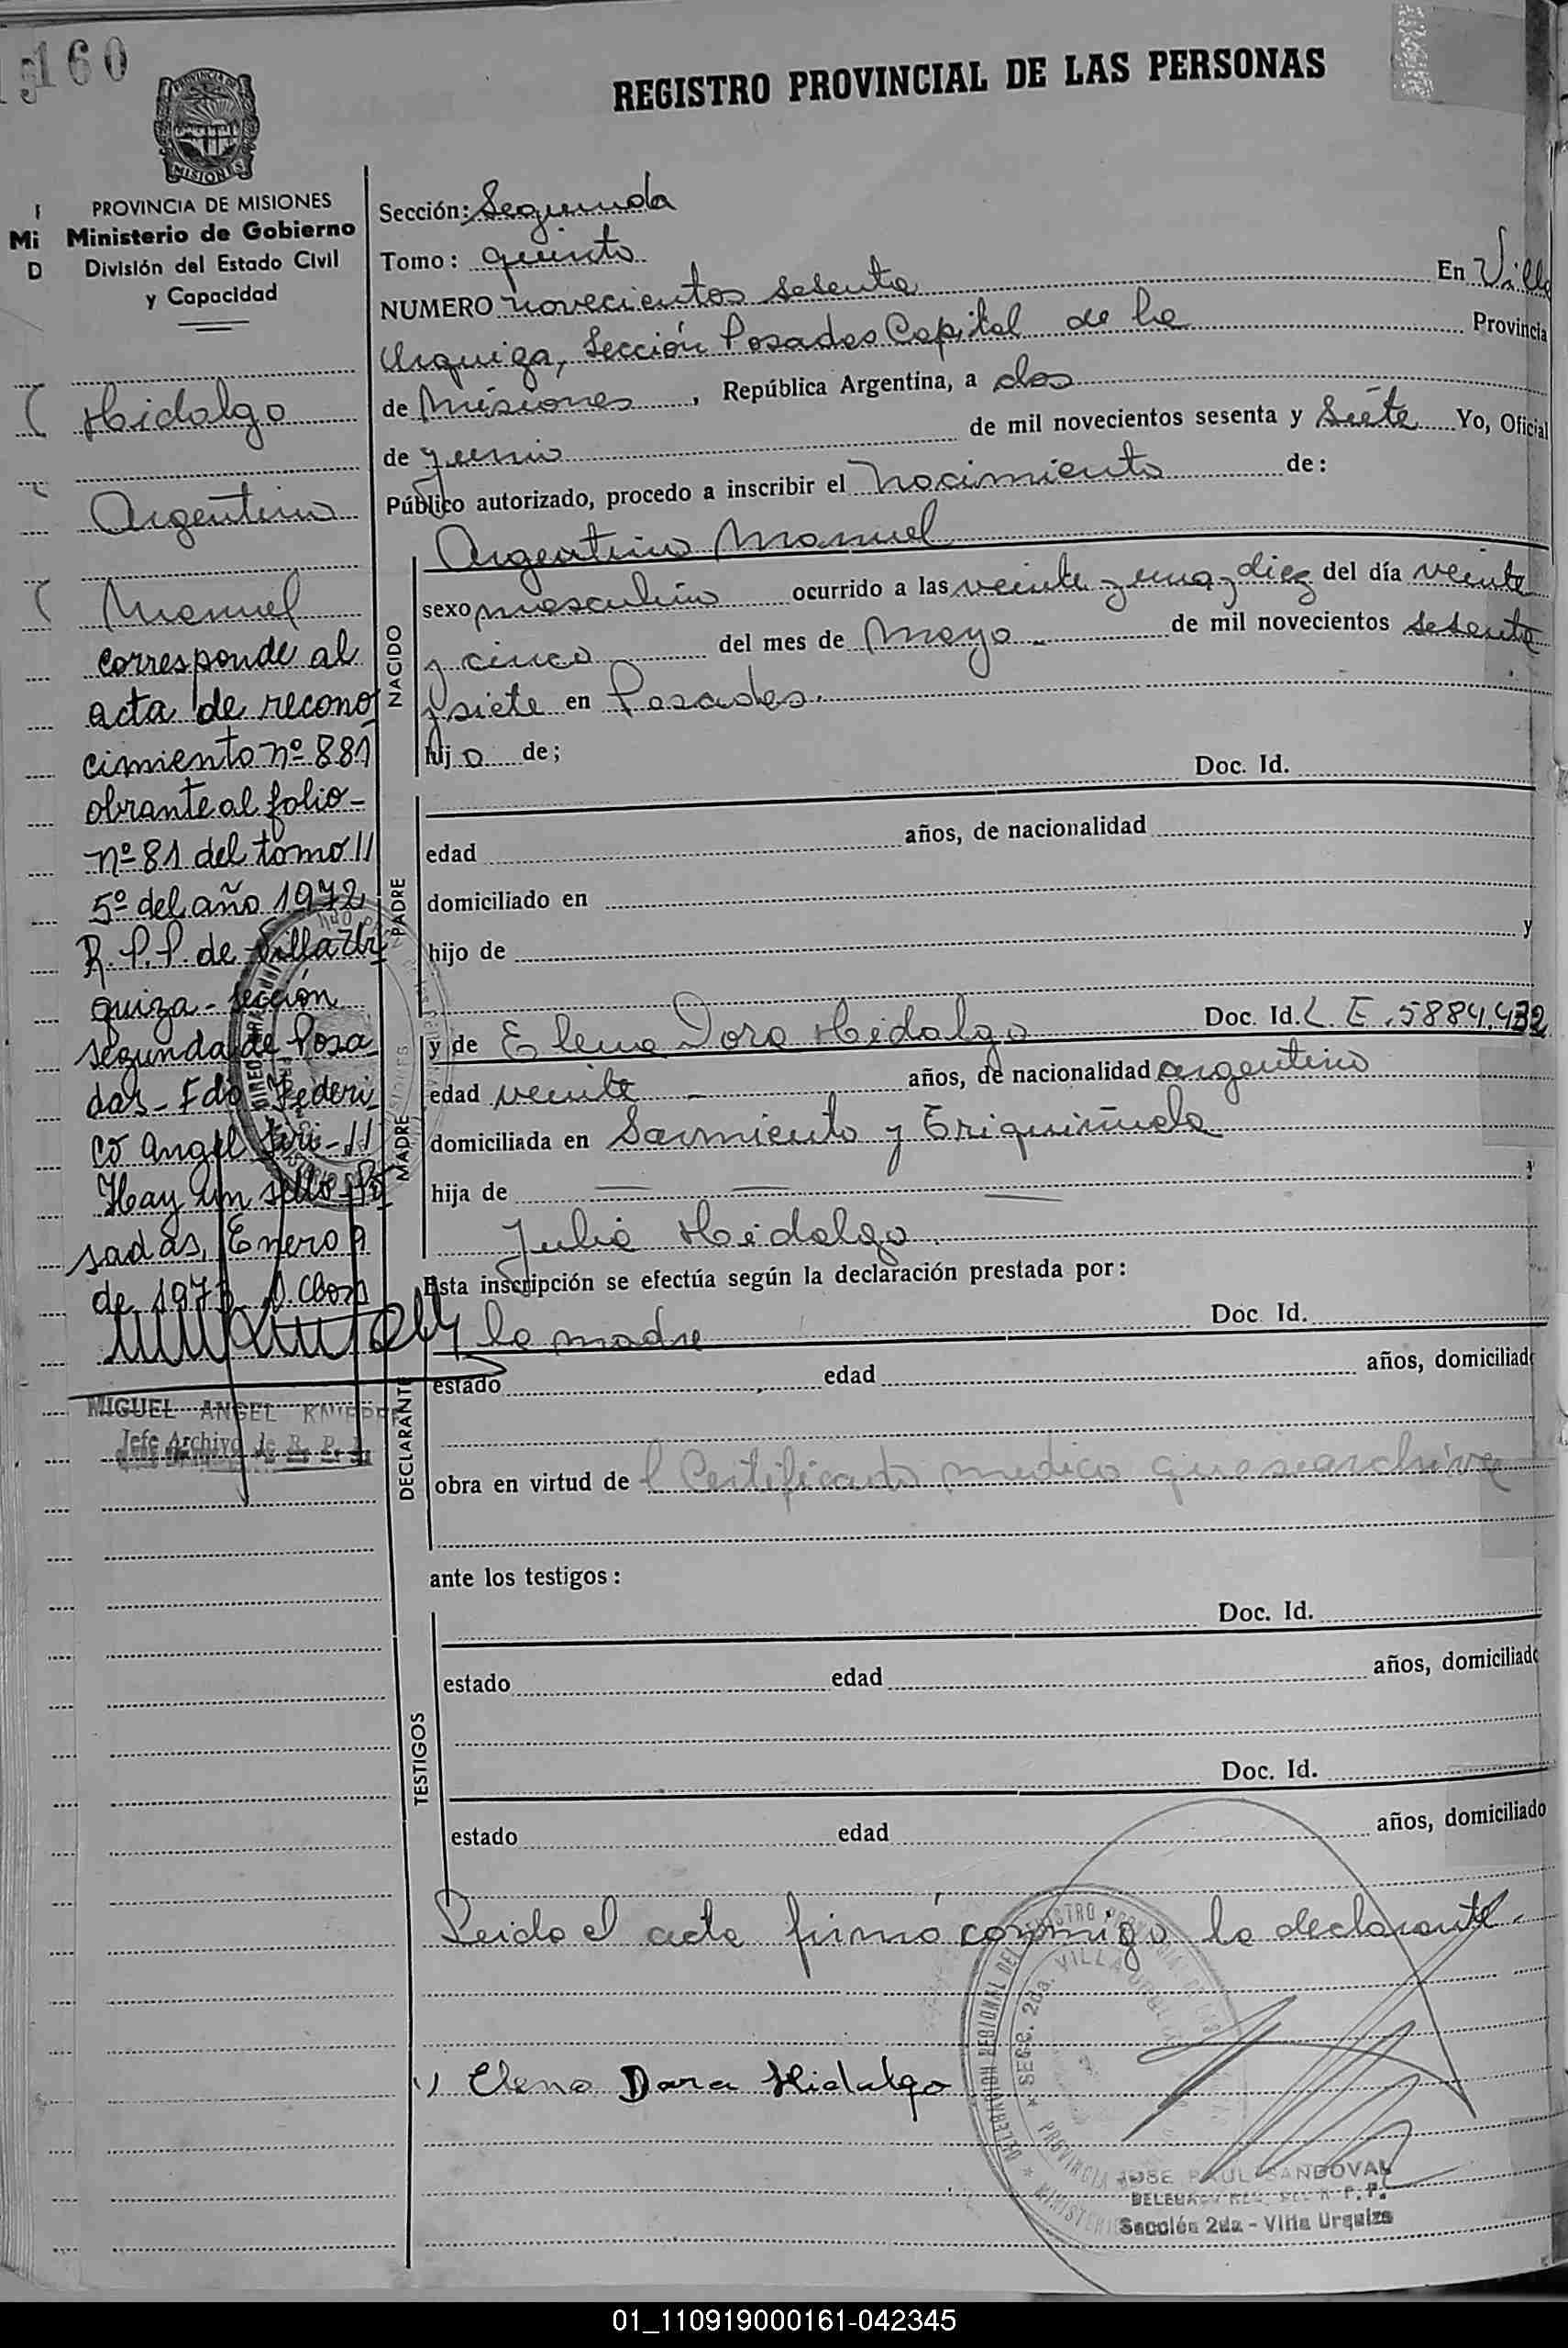 160
REGISTRO PROVINCIAL DE LAS PERSONAS
PROVINCIA DE MISIONES
MISIONES
PROVINCIA DE MISIONES
Ministerio de Gobierno
División del Estado Civil
y Capacidad
Mi
D
Hidalgo
Argentino
Manuel
corresponde al
acta de recono
cimiento nº 881
obrante al folio-
nº 81 del tomo
5º del año 1972
R.P.P. de Villa Ur
quiza - sección
segunda de Posa
das - Fdo Federi
co Angel
Hay un sello - Po
sadas, Enero 9
de 197
MIGUEL ANGEL
Jefe Archivo de R. P. P.
Sección: Segunda
Tomo: quinto
NUMERO novecientos sesenta En Villa
Urquiza, Sección Posadas Capital de la Provincia
de Misiones, República Argentina, a dos
de junio de mil novecientos sesenta y Siete Yo, Oficial
Público autorizado, procedo a inscribir el Nacimiento de:
Argentino Manuel
NACIDO
sexo masculino ocurrido a las veinte y una y diez del día veinte
y cinco del mes de Mayo de mil novecientos sesenta
y siete en Posadas.
hijo de;
Doc. Id.
PADRE
edad años, de nacionalidad
domiciliado en
hijo de y
MADRE
y de Elena Dora Hidalgo Doc. Id. L E. 5884.432
edad veinte - años, de nacionalidad argentina
domiciliada en Sarmiento y
hija de — — — y
Julia Hidalgo.
Esta inscripción se efectúa según la declaración prestada por:
DECLARANTE
la madre Doc. Id.
estado edad años, domiciliado
obra en virtud de l Certificado medico que se archiva
ante los testigos:
TESTIGOS
Doc. Id.
estado edad años, domiciliado
Doc. Id.
estado edad años, domiciliado
Leida el acta firmó conmigo la declarante.
Elena Dora Hidalgo
SECC. 2da. VILLA URQUIZA
JOSE RAUL SANDOVAL
Sección 2da - Villa Urquiza
01_110919000161-042345